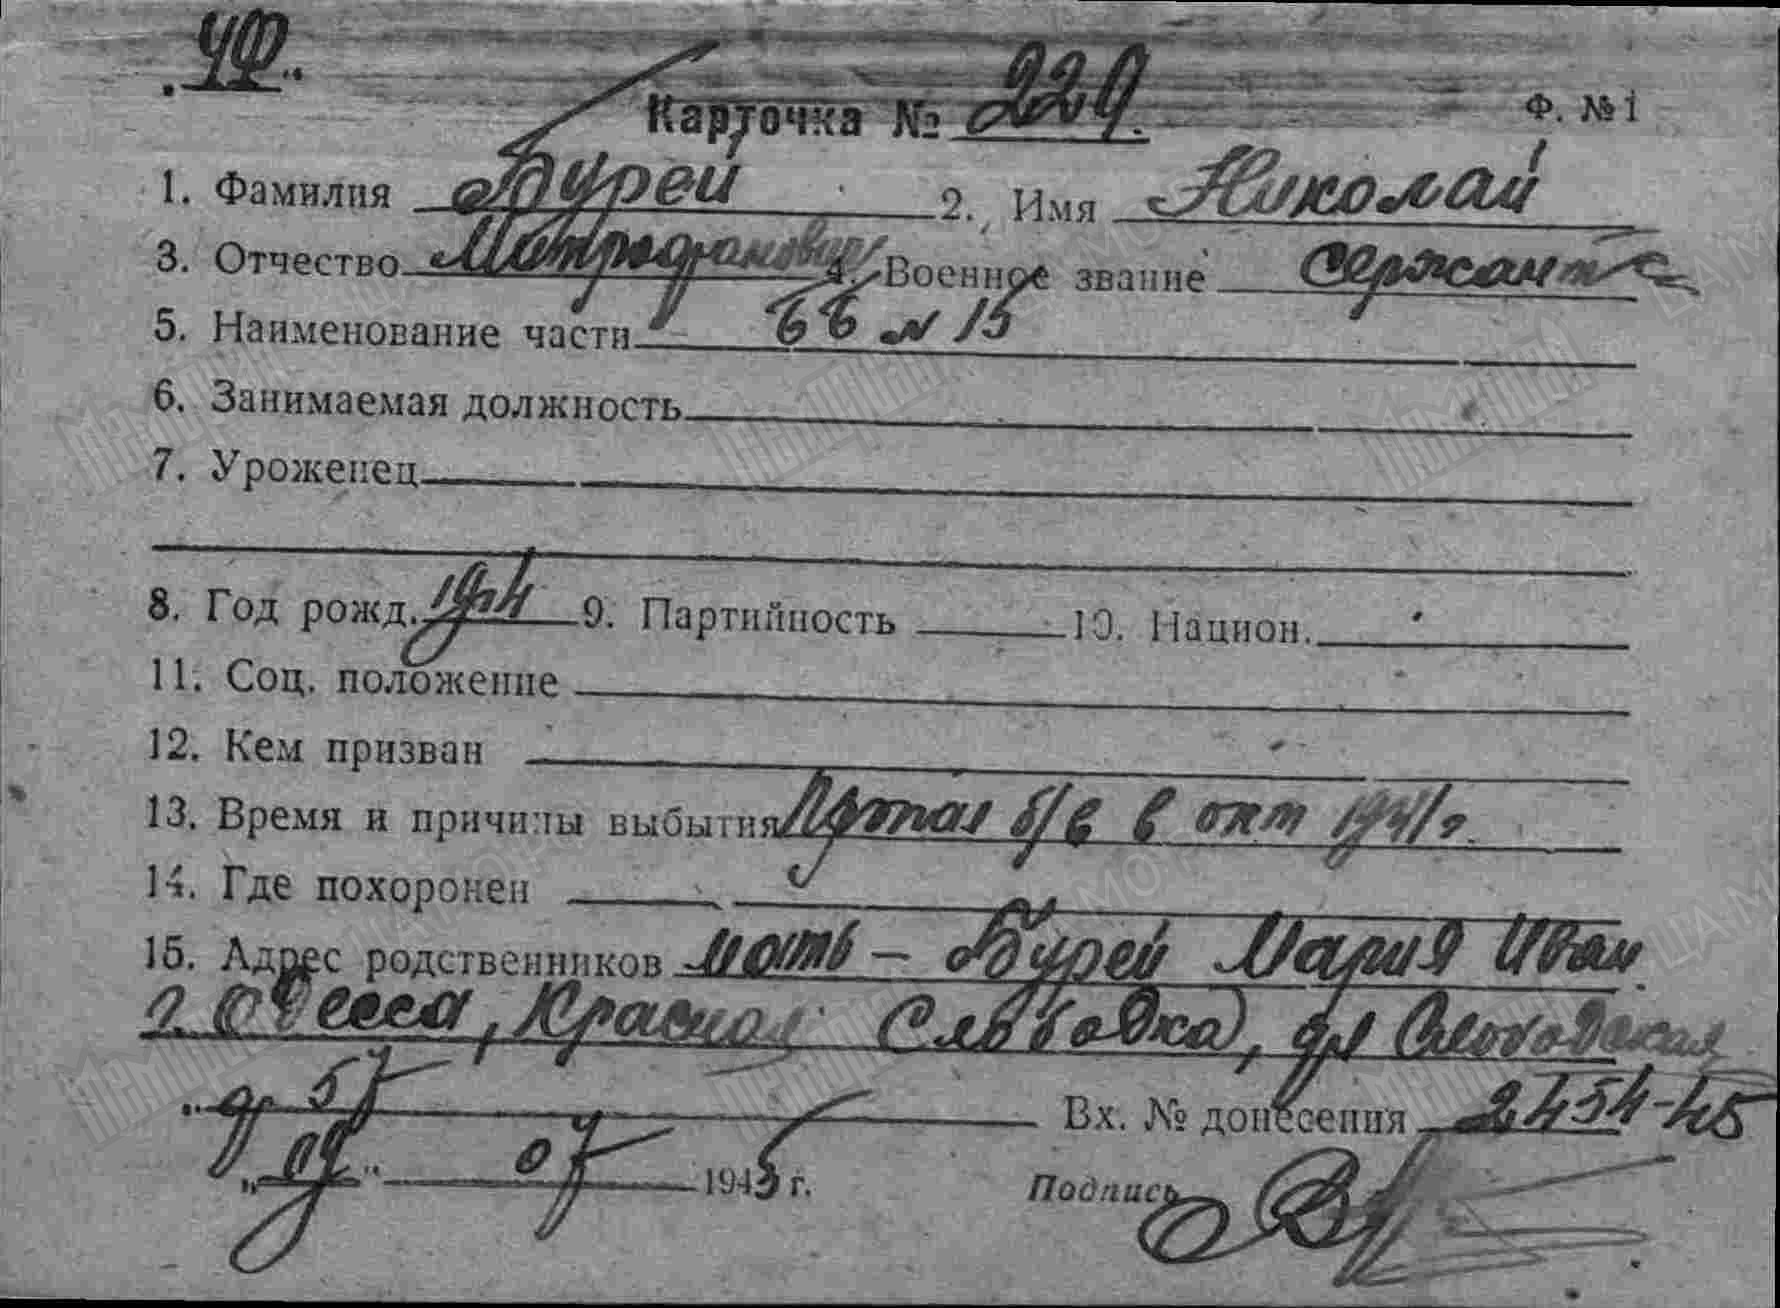 ЧФ
Карточка № 229. Ф. № 1
1. Фамилия Бурей 2. Имя Николай
3. Отчество Митрофанович 4. Военное звание сержант
5. Наименование части ББ № 15
6. Занимаемая должность
7. Уроженец
8. Год рожд. 9. Партийность 10. Национ.
11. Соц. положение
12. Кем призван
13. Время и причины выбытия Пропал б/в в окт 1941 г.
14. Где похоронен
15. Адрес родственников мать – Бурей Мария Иван
г. Одесса, Красная Слободка, ул Слободская
д. 57 Вх. № донесения 2454-45
„09“ 07 1945 г. Подпись